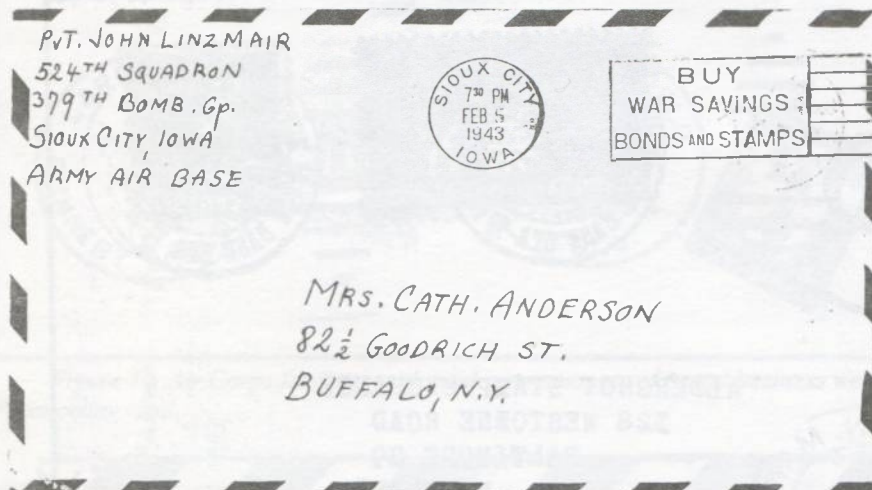 PVT. JOHN LINZMAIR
524TH SQUADRON
379TH BOMB. Gp.
SIOUX CITY, IOWA
ARMY AIR BASE
SIOUX CITY
730 PM
FEB 5
1943
IOWA
BUY
WAR SAVINGS
BONDS AND STAMPS
MRS. CATH. ANDERSON
82½ GOODRICH ST.
BUFFALO, N.Y.